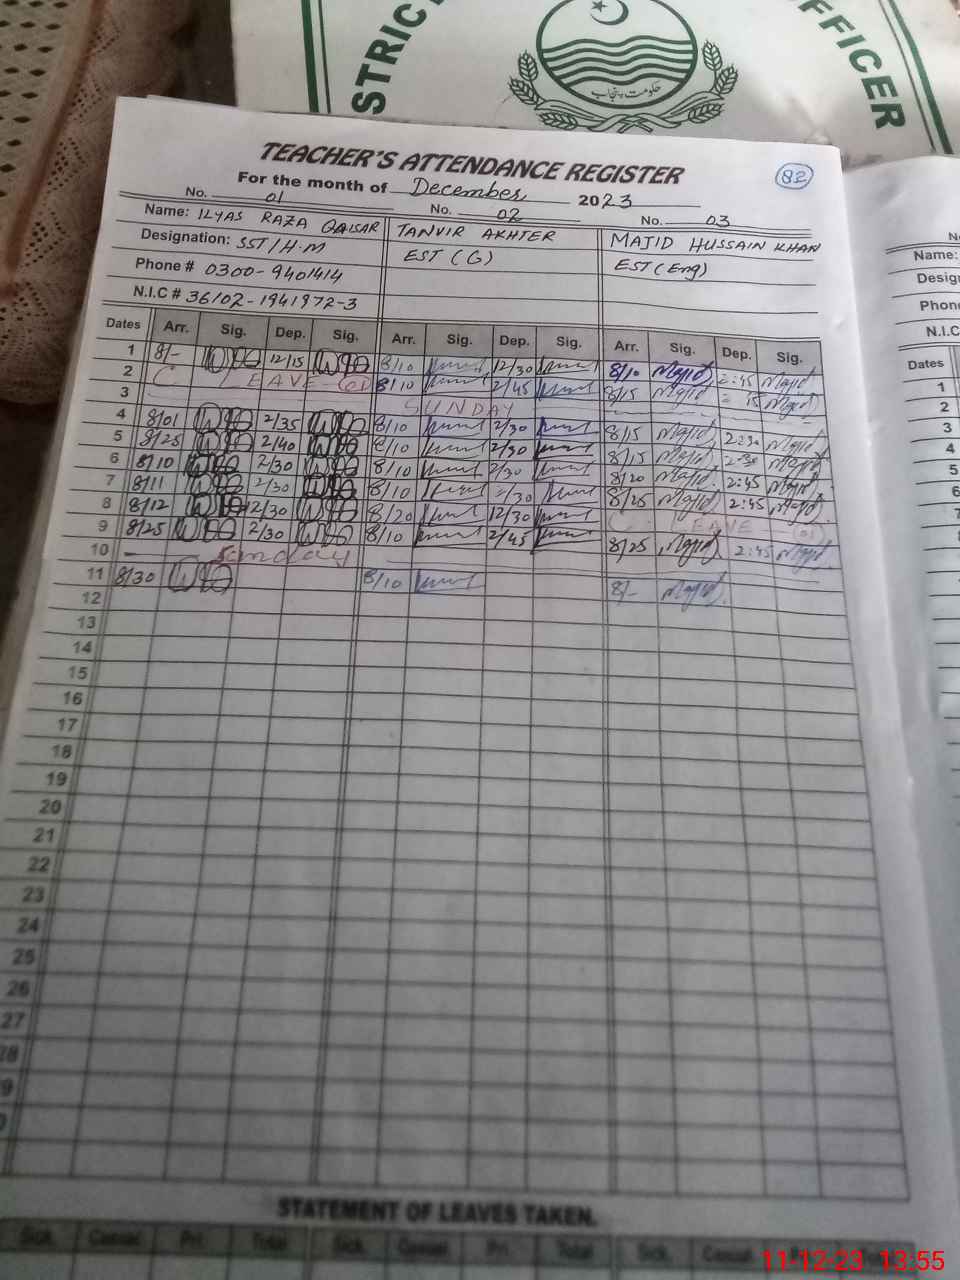 STRIC
FFICER
حکومت پنجاب
TEACHER'S ATTENDANCE REGISTER
82
For the month of December 2023
No. 01 No. 02 No. 03
Name: ILYAS RAZA QAISAR TANVIR AKHTER MAJID HUSSAIN KHAN
Designation: SST/H.M EST (G) EST (Eng)
Phone # 0300-9401414
N.I.C # 36102-1941972-3
Dates Arr. Sig. Dep. Sig. Arr. Sig. Dep. Sig. Arr. Sig. Dep. Sig.
1 8/- 12/15 8/10 12/30 8/10 Majid 2:45 Majid
2 C. LEAVE (01) 8/10 2/45 8/15 Majid Majid
3 SUNDAY
4 8/01 2/35 8/10 2/30 8/15 Majid 2:30 Majid
5 8/25 2/40 8/10 2/30 8/15 Majid 2:30 Majid
6 8/10 2/30 8/10 2/30 8/20 Majid 2:45 Majid
7 8/11 2/30 8/10 2/30 8/25 Majid 2:45 Majid
8 8/12 12/30 8/20 12/30 C. LEAVE (01)
9 8/25 2/30 8/10 2/45 8/25 Majid 2:45 Majid
10 Sunday
11 8/30 8/10 8/- Majid
12
13
14
15
16
17
18
19
20
21
22
23
24
25
26
27
28
9
0
STATEMENT OF LEAVES TAKEN.
Sick. Casual. Pri. Total Sick. Casual. Pri. Total Sick. Casual.
Name:
Desig
Phon
N.I.C
Dates
1
2
3
4
5
6
7
11-12-23 13:55